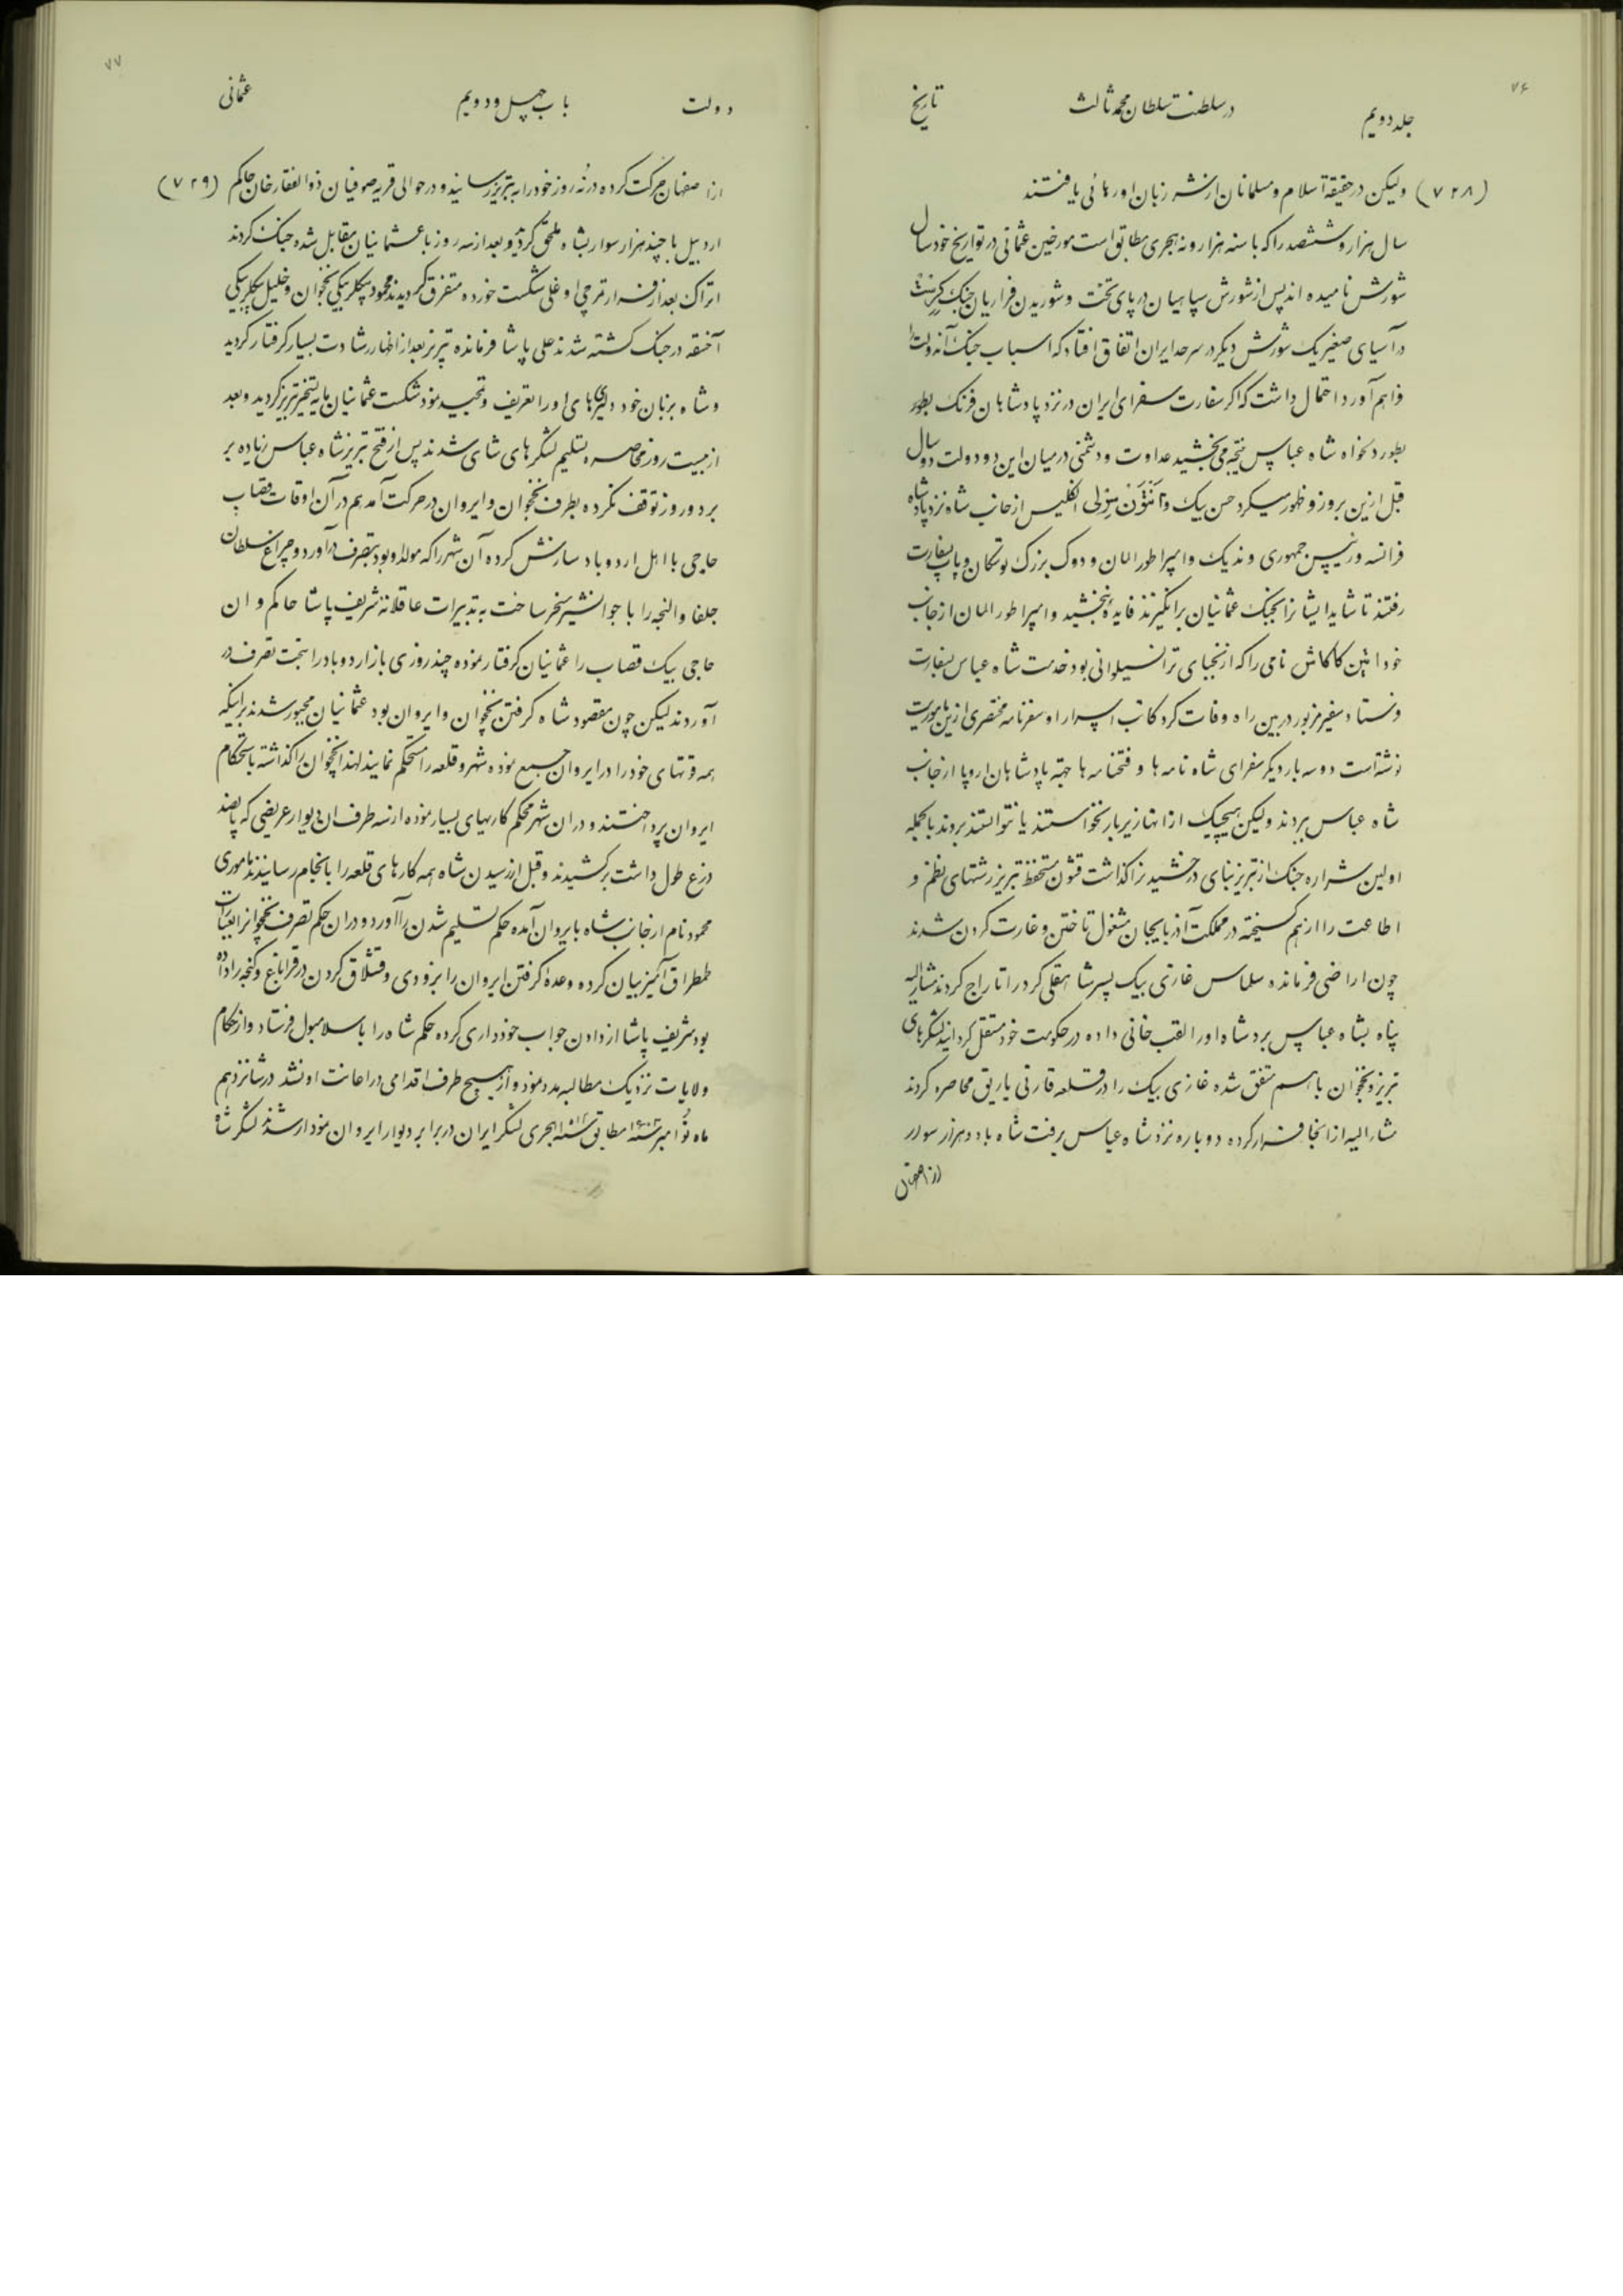 ۷۶
جلد دویم
در سلطنت سلطان محمد ثالث
تاریخ
(۷۲۸) ولیکن در حقیقة اسلام و مسلمانان از شر زبان او رهائی یافتند
سال هزار و ششصد را که با سنه هزار و نه هجری مطابق است مورخین عثمانی در تواریخ خود سال
شورش نامیده اند پس از شورش سپاهیان در پای تخت و شوریدن فراریان جنک کرستش
در آسیای صغیر یک شورش دیکر در سرحد ایران اتفاق افتاد که اسباب جنک آنه دولت را
فراهم آورد احتمال داشت که اکر سفارت سفرای ایران در نزد پادشاهان فرنک بطور
بطور دلخواه شاه عباس نتیجه می بخشید عداوت و دشمنی در میان این دو دولت دو سال
قبل ازین بروز و ظهور میکرد حسن بیک و آنتون شرلی انکلیس از جانب شاه نزد پادشاه
فرانسه و رئیس جمهوری وندیک و امپراطور المان و دوک بزرک توسکان و پاپ بسفارت
رفتند تا شاید ایشانرا بجنک عثمانیان برانکیزند فایدهٔ نبخشید و امپراطور المان از جانب
خود اتین کاکاش نامی را که از نجبای ترانسیلوانی بود خدمت شاه عباس بسفارت
فرستاد سفیر مزبور در بین راه وفات کرد کاتب اسرار او سفرنامه مختصری ازین ماموریت
نوشته است دو سه بار دیکر سفرای شاه نامه ها و فتحنامه ها جهة پادشاهان اروپا از جانب
شاه عباس بردند ولیکن هیچیک از انها زیر بار نخواستند یا نتوانستند بروند بالجمله
اولین شراره جنک از تبریز بنای درخشیدن کذاشت قشون مستحفظ تبریز رشتهای نظم و
اطاعت را از هم کسیخته در مملکت آذربایجان مشغول تاختن و غارت کردن شدند
چون اراضی فرمانده سلماس غازی بیک پسر شاهقلی کرد را تاراج کردند مشارالیه
پناه بشاه عباس برد شاه او را لقب خانی داده در حکومت خود مستقل کردانید لشکرهای
تبریز و نخجوان با هم متفق شده غازی بیک را در قلعه قارنی یاریق محاصره کردند
مشارالیه از انجا فرار کرده دوباره نزد شاه عباس برفت شاه با دو هزار سوار
از اصفهان
۷۷
دولت
باب چهل و دویم
عثمانی
از اصفهان حرکت کرده در نه روز خود را به تبریز رسانید و در حوالی قریه صوفیان ذوالفقار خان حاکم (۷۲۹)
اردبیل با چند هزار سوار بشاه ملحق کردید و بعد از سه روز با عثمانیان مقابل شده جنک کردند
اتراک بعد از فرار ترچی اوغلی شکست خورده متفرق کردیدند محمود بیکلربیکی نخجوان و خلیل بیکلربیکی
آخسقه در جنک کشته شدند علی پاشا فرمانده تبریز بعد از اظهار رشادت بسیار کرفتار کردید
و شاه بزبان خود دلیریهای او را تعریف و تمجید نمود شکست عثمانیان مایه تسخیر تبریز کردید و بعد
از بیست روز محاصره تسلیم لشکرهای شاهی شدند پس از فتح تبریز شاه عباس زیاده بر
بر دو روز توقف نکرده بطرف نخجوان و ایروان در حرکت آمد هم در آن اوقات قصاب
حاجی با اهل اردوباد سازش کرده آن شهر را که مولد او بود بتصرف درآورد و چراغ سلطان
جلفا و النجه را با جوانشیر مسخر ساخت به تدبیرات عاقلانه شریف پاشا حاکم وان
حاجی بیک قصاب را عثمانیان کرفتار نموده چند روزی باز اردوباد را بتحت تصرف در
آوردند لیکن چون مقصود شاه کرفتن نخجوان و ایروان بود عثمانیان مجبور شدند براینکه
همه قوتهای خود را در ایروان جمع نموده شهر و قلعه را مستحکم نمایند لهذا نخجوان را کذاشته باستحکام
ایروان پرداختند و در ان شهر محکم کاریهای بسیار نموده از سه طرف ان دیوار عریضی که پانصد
ذرع طول داشت برکشیدند و قبل از رسیدن شاه همه کارهای قلعه را بانجام رسانیدند ماموری
محمود نام از جانب شاه بایروان آمده حکم تسلیم شدن را آورد و در ان حکم تصرف نخجوانرا بعبارات
طمطراق آمیز بیان کرده وعده کرفتن ایروان را بزودی و قشلاق کردن در قراباغ و کنجه را داده
بود شریف پاشا از دادن جواب خودداری کرده حکم شاه را باسلامبول فرستاد و از حکام
ولایات نزدیک مطالبه مدد نمود و از هیچ طرف اقدامی در اعانت او نشد در شانزدهم
ماه نوامبر سنه ۱۶۰۳ مطابق سنه ۱۰۱۲ هجری لشکر ایران در برابر دیوار ایروان نمودار شدند لشکر شاه